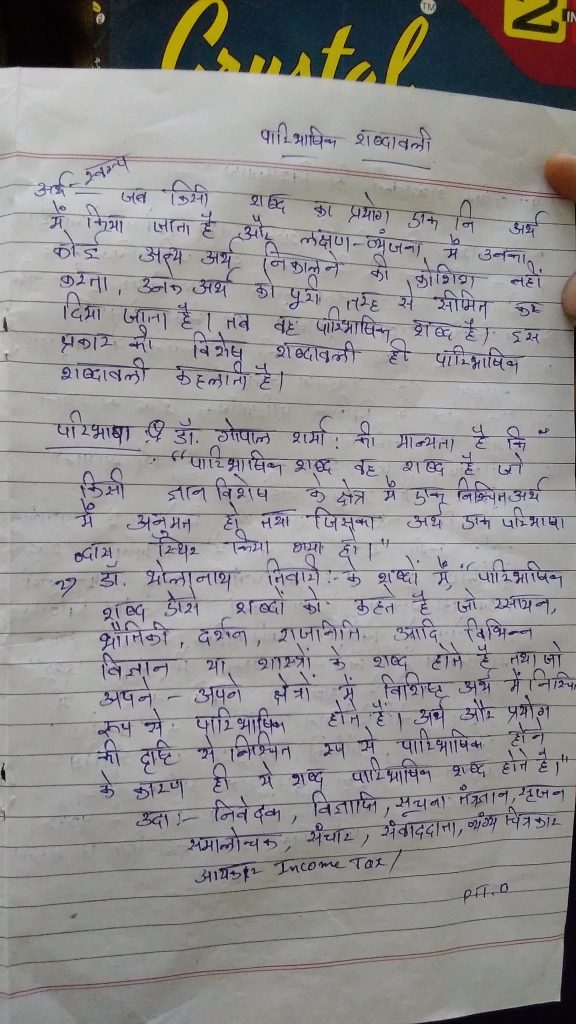 Crystal
TM
2
IN
पारिभाषिक शब्दावली
अर्थ - स्वरूप
जब किसी शब्द का प्रयोग एक नि अर्थ
में किया जाता है और लक्षण-व्यंजना में उनका
कोई अन्य अर्थ निकालने की कोशिश नहीं
करता, उनके अर्थ को पूरी तरह से सीमित कर
दिया जाता है। तब वह पारिभाषिक शब्द है। इस
प्रकार की विशेष शब्दावली ही पारिभाषिक
शब्दावली कहलाती है।
परिभाषा :- डॉ. गोपाल शर्मा : की मान्यता है कि "
"पारिभाषिक शब्द वह शब्द है जो
किसी ज्ञान विशेष के क्षेत्र में एक निश्चित अर्थ
में अनुमत हो तथा जिसका अर्थ एक परिभाषा
द्वारा स्थिर किया गया हो।"
2) डॉ. भोलानाथ तिवारी :- के शब्दों में, "पारिभाषिक
शब्द ऐसे शब्दों को कहते है जो रसायन,
भौतिकी, दर्शन, राजनिति आदि विभिन्न
विज्ञान या शास्त्रों के शब्द होते है तथा जो
अपने - अपने क्षेत्रों में विशिष्ट अर्थ में निश्चि
रूप से पारिभाषिक होते हैं। अर्थ और प्रयोग
की दृष्टि से निश्चित रूप से पारिभाषिक होने
के कारण ही ये शब्द पारिभाषिक शब्द होते है।"
उदा :- निवेदक, विज्ञप्ति, सूचना तंत्रज्ञान, सृजन
समालोचक, संचार, संवाददाता, व्यंग्य चित्रकार
आयकर Income Tax/
P.T.O